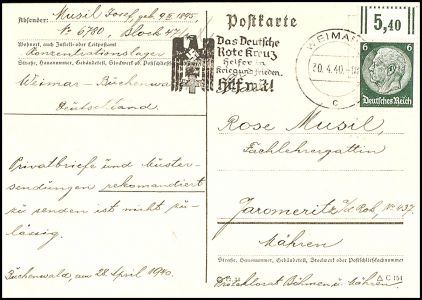 Absender: Musil Josef, geb. 9.II.1895,
№ 6780, Block 47
Wohnort, auch Zustell- oder Leitpostamt
Konzentrationslager
Straße, Hausnummer, Gebäudeteil, Stockwerk od. Postschließfach
Weimar - Buchenwald
Deutschland
Privatbriefe und Muster-
sendungen rekomandiert
zu senden ist nicht zu-
lässig.
Buchenwald, am 28. April 1940.
Postkarte
Das Deutsche
Rote Kreuz
Helfer in
Krieg und Frieden.
Hilf mit!
WEIMAR
30.4.40.
c
5,40
6 6
Deutsches Reich
Rose Musil,
Fachlehrergattin
Jaromeritz a/d Rok., № 437.
Mähren
Straße, Hausnummer, Gebäudeteil, Stockwerk oder Postschließfachnummer
Protektorat Böhmen u. Mähren.
C 154